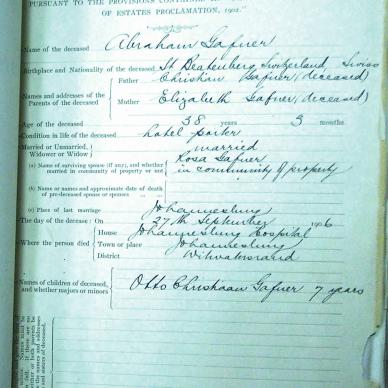 PURSUANT TO THE PROVISIONS
OF ESTATES PROCLAMATION, 1902."
Name of the deceased Abraham Gafner
Birthplace and Nationality of the deceased St Beatenberg, Switzerland, Swiss
Names and addresses of the Parents of the deceased
Father Christian Gafner (deceased)
Mother Elizabeth Gafner (deceased)
Age of the deceased 38 years 3 months
Condition in life of the deceased hotel porter
Married or Unmarried, Widower or Widow married
(a) Name of surviving spouse (if any), and whether married in community of property or not Rosa Gafner
in community of property
(b) Name or names and approximate date of death of pre-deceased spouse or spouses
(c) Place of last marriage Johannesburg
The day of the decease : On 27th September 1906
Where the person died
House Johannesburg Hospital
Town or place Johannesburg
District Witwatersrand
Names of children of deceased, and whether majors or minors Otto Christiaan Gafner 7 years